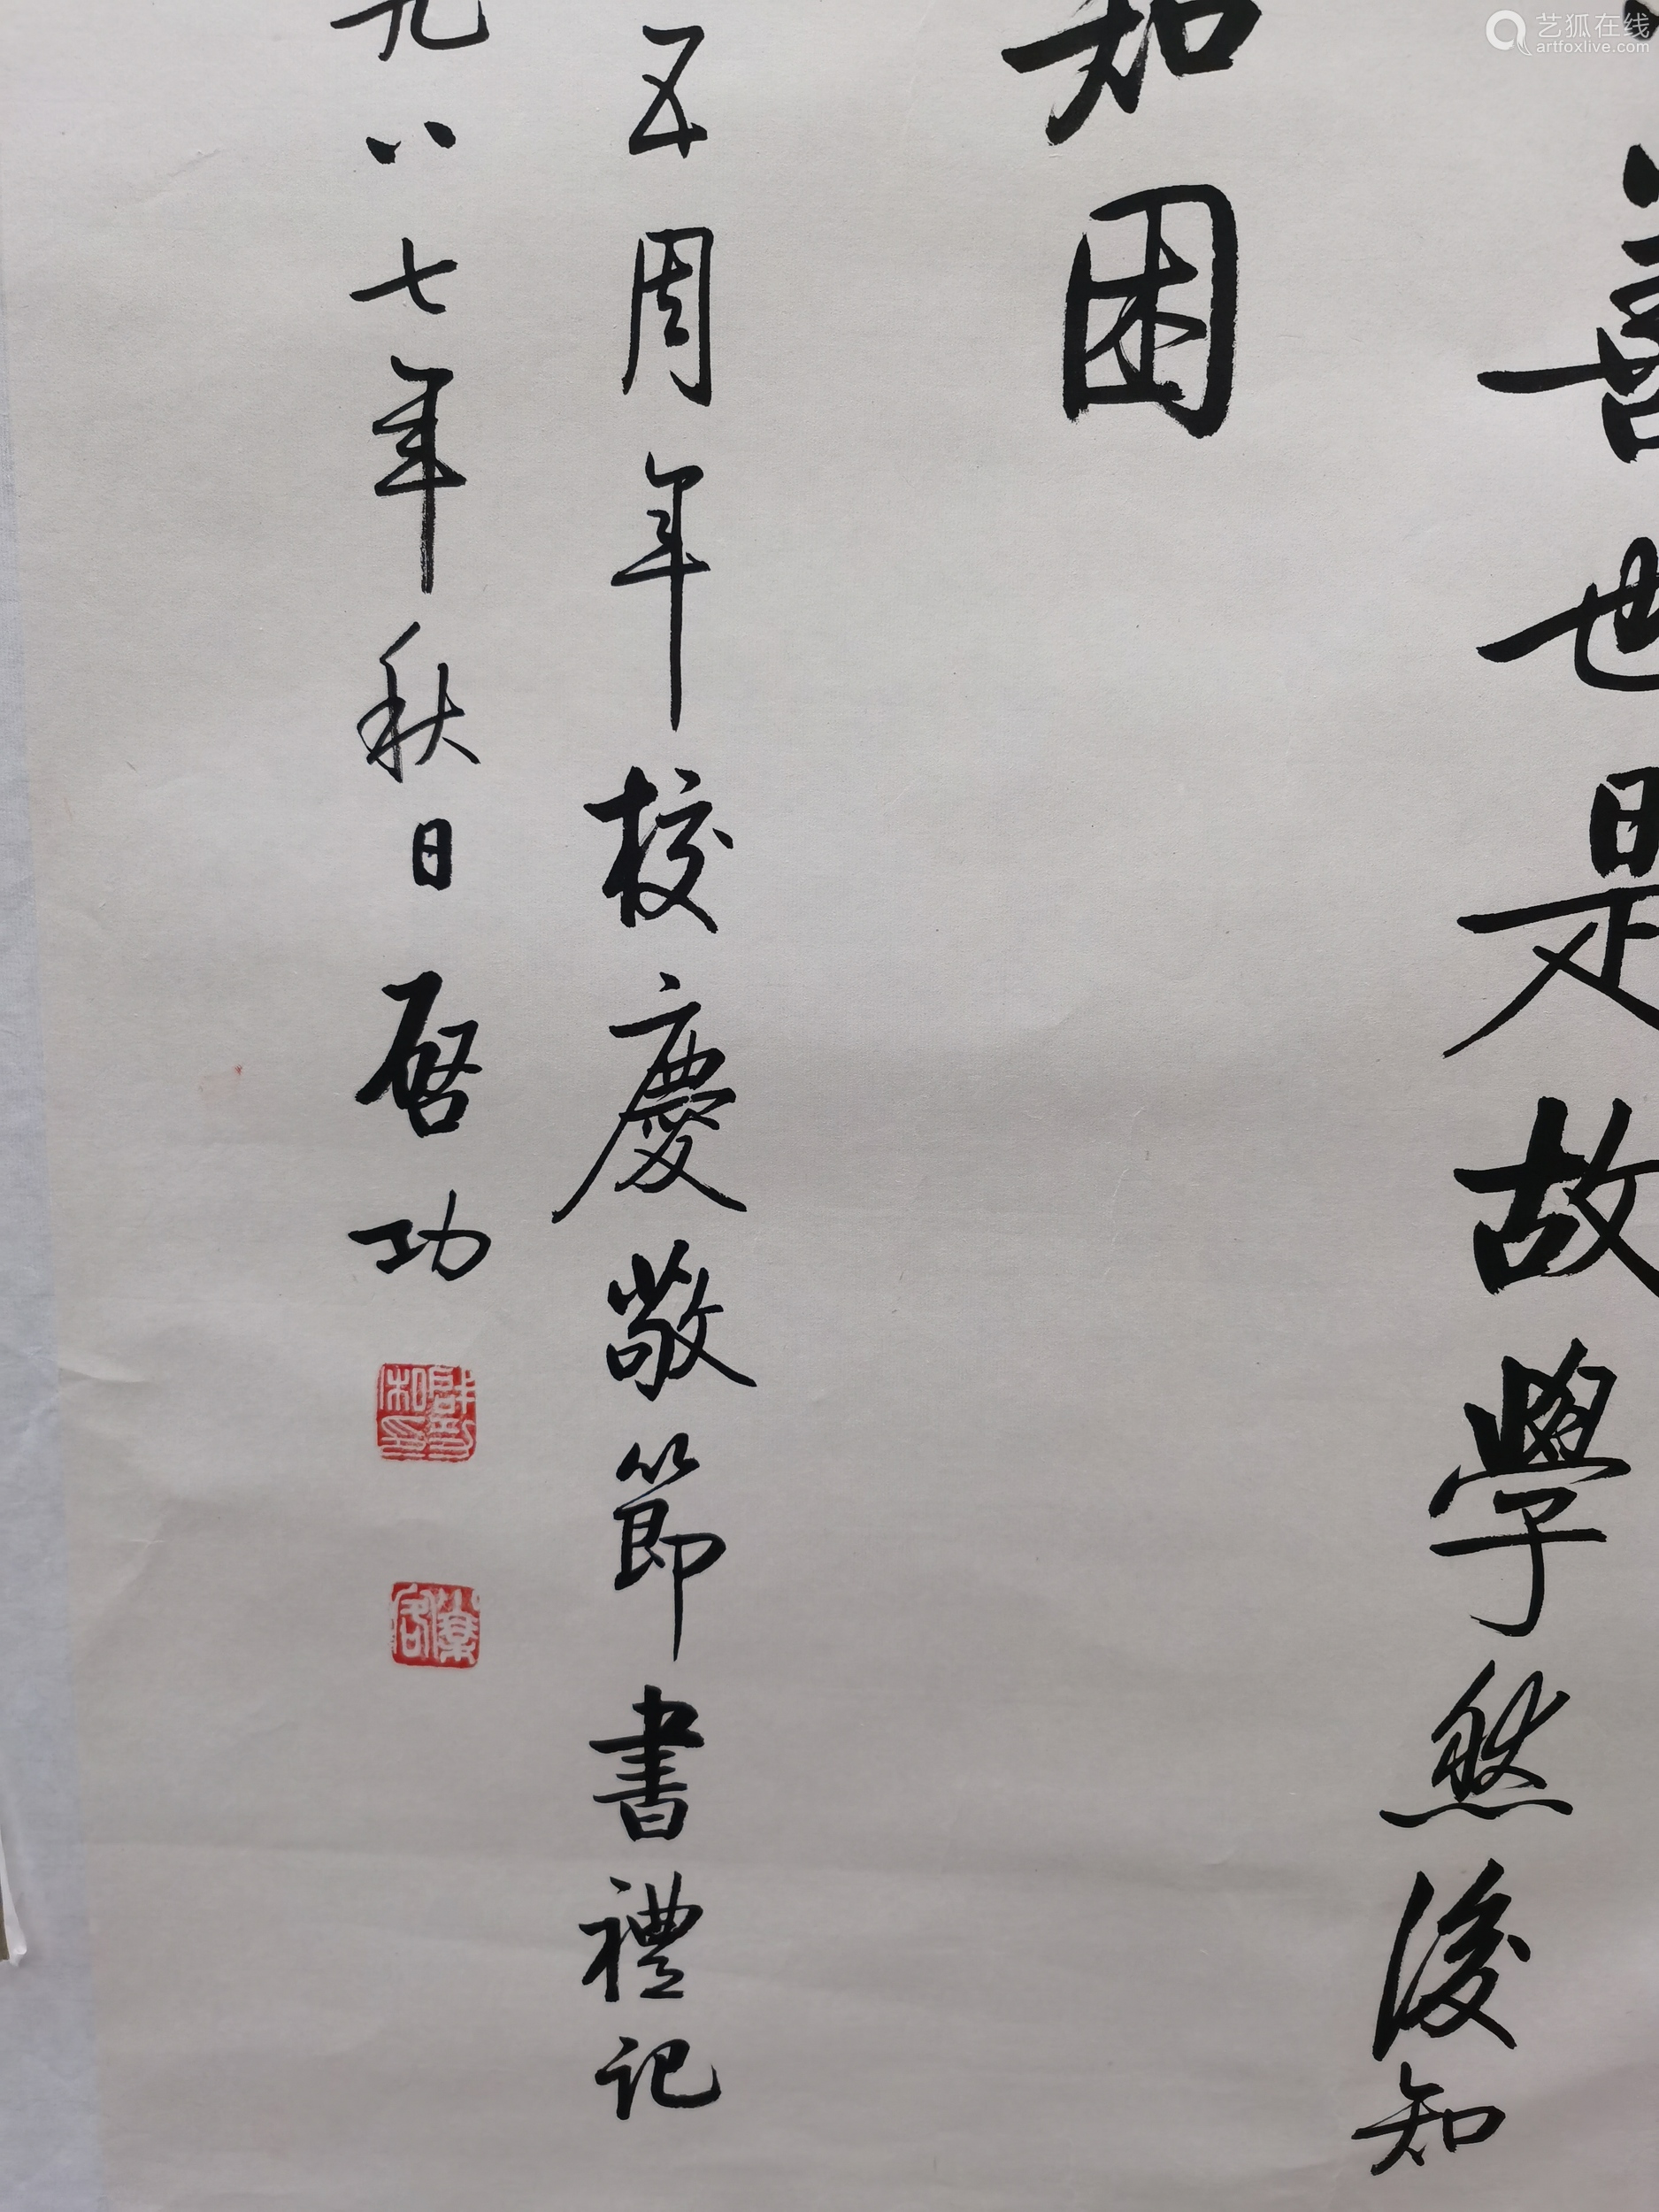 善也是故學然後知
知困
五周年校慶敬節書禮記
九八七年秋日啓功
艺狐在线
artfoxlive.com